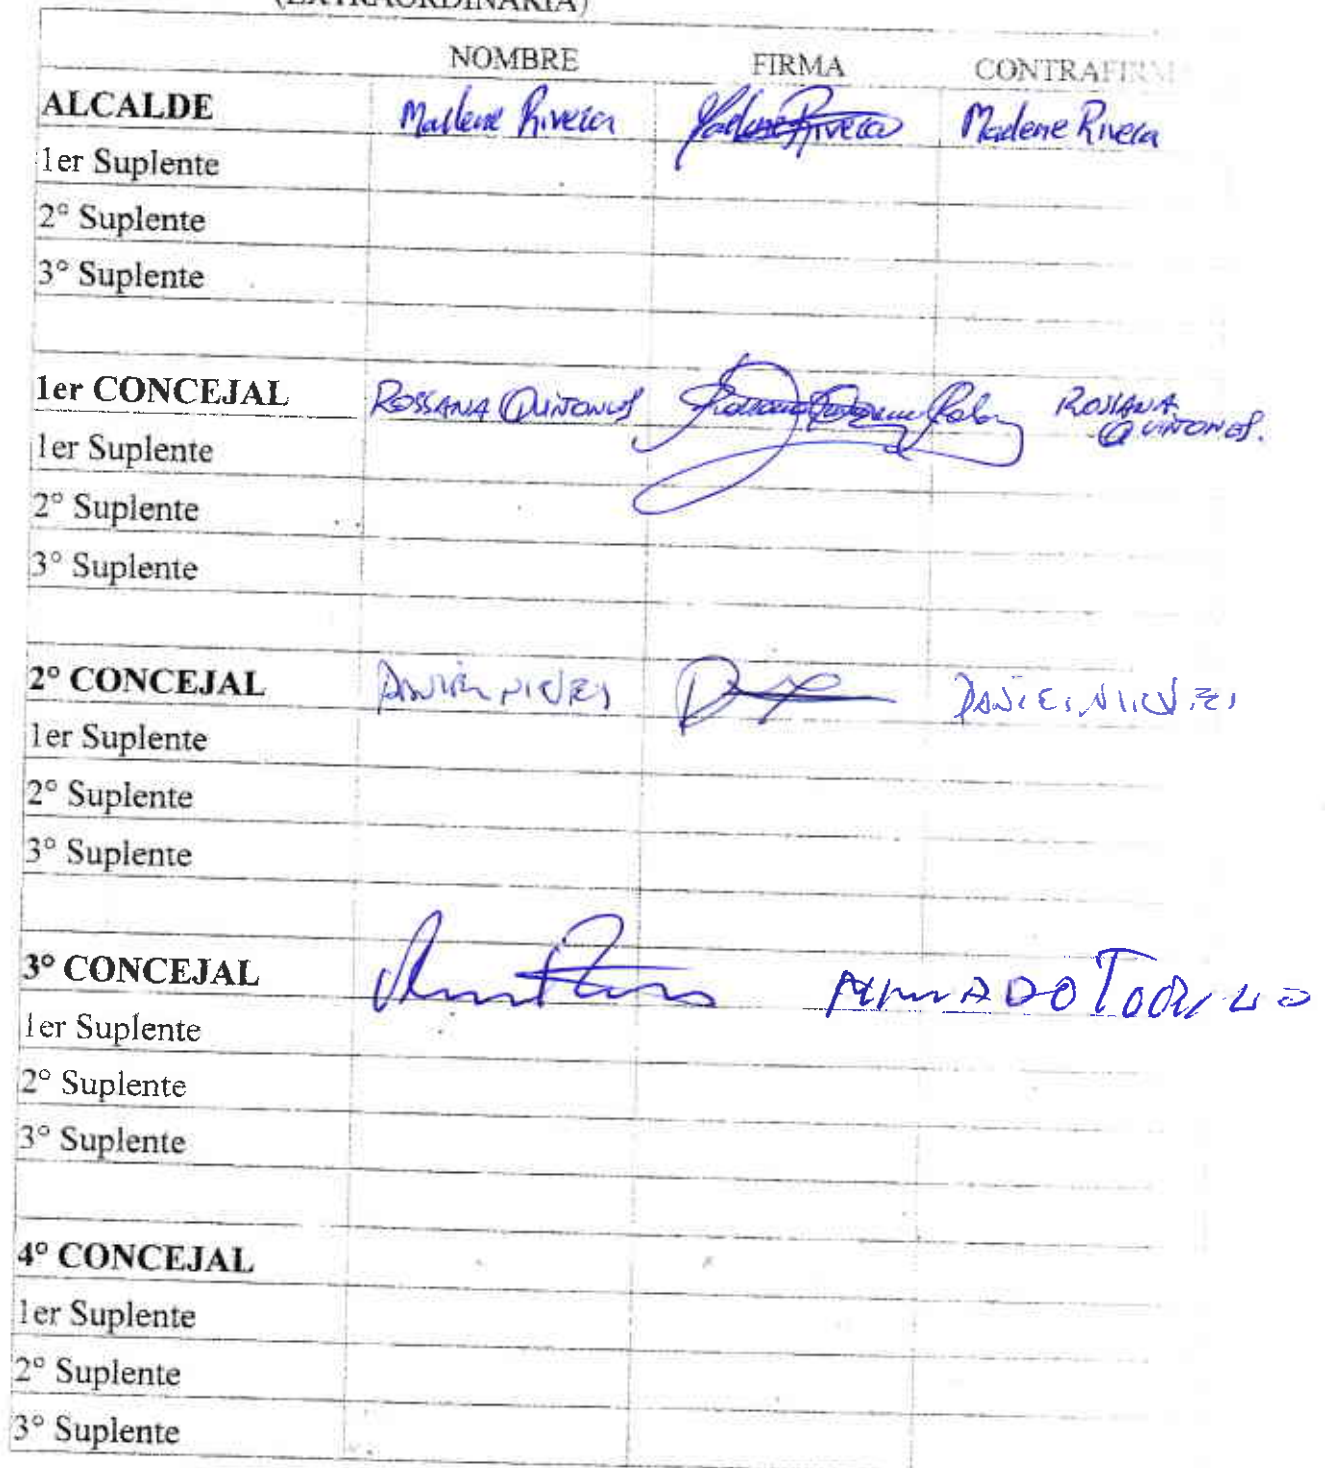 (EXTRAORDINARIA)
NOMBRE FIRMA CONTRAFIRMA
ALCALDE Marlene Rivera Marlene Rivera Marlene Rivera
1er Suplente
2° Suplente
3° Suplente
1er CONCEJAL ROSSANA QUIÑONES ROSSANA
QUIÑONES.
1er Suplente
2° Suplente
3° Suplente
2° CONCEJAL DANIEL NIEVES DANIEL NIEVES
1er Suplente
2° Suplente
3° Suplente
3° CONCEJAL
1er Suplente
2° Suplente
3° Suplente
4° CONCEJAL
1er Suplente
2° Suplente
3° Suplente